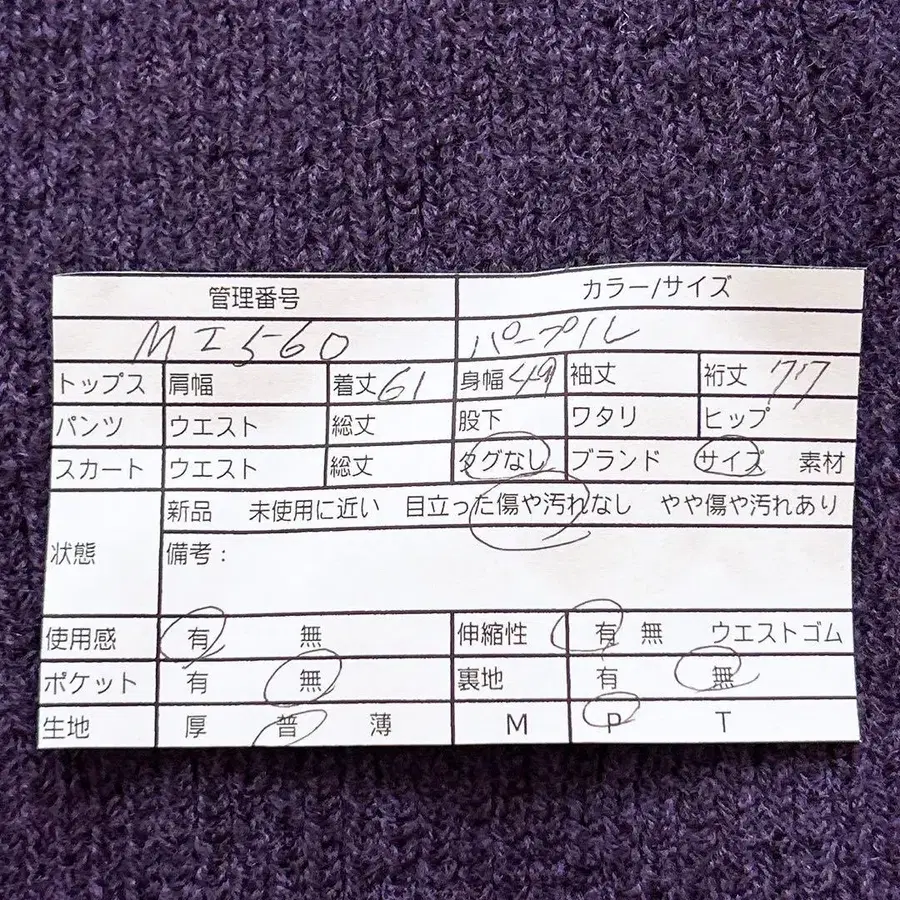 管理番号 カラー/サイズ
MI560 パープル
トップス 肩幅 着丈61 身幅49 袖丈 裄丈 77
パンツ ウエスト 総丈 股下 ワタリ ヒップ
スカート ウエスト 総丈 タグなし ブランド サイズ 素材
状態 新品 未使用に近い 目立った傷や汚れなし やや傷や汚れあり
備考:
使用感 有 無 伸縮性 有 無 ウエストゴム
ポケット 有 無 裏地 有 無
生地 厚 普 薄 M P T